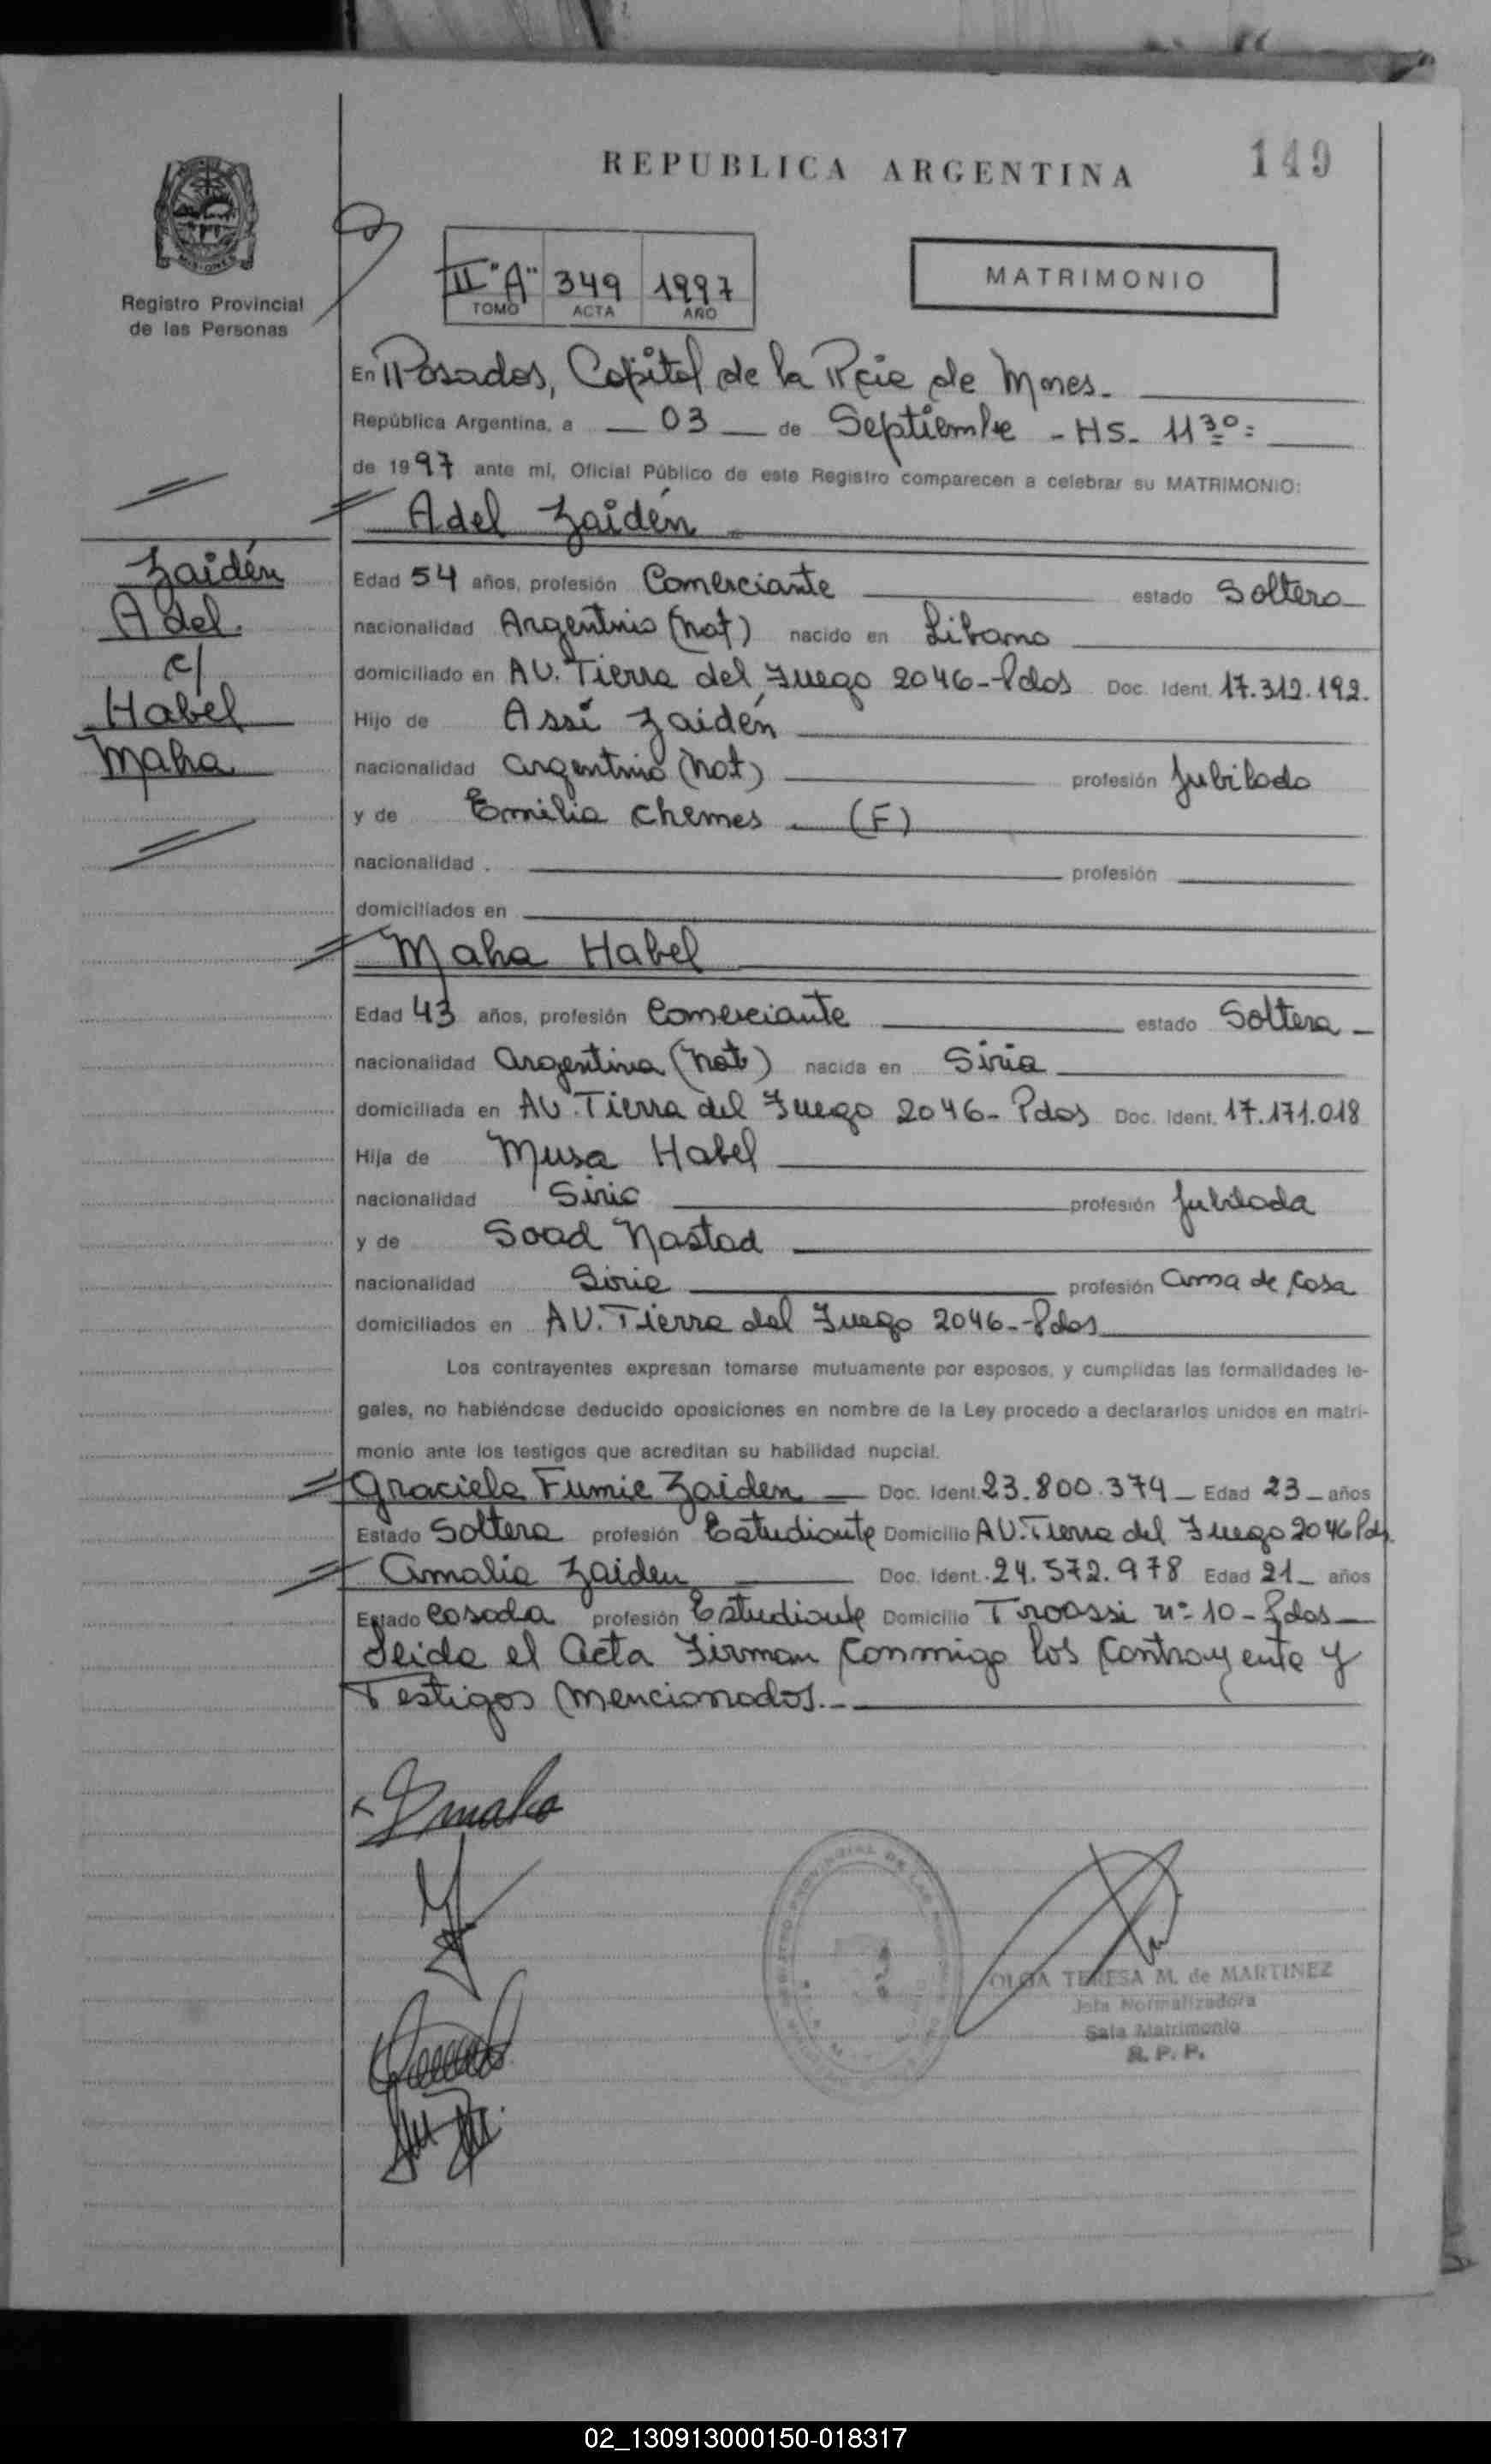 REPUBLICA ARGENTINA
149
MISIONES
Registro Provincial
de las Personas
II "A" 349 1997
TOMO ACTA AÑO
MATRIMONIO
En Posadas, Capital de la Pcia de Mnes.
República Argentina, a 03 de Septiembre - HS. 11 30 =
de 1997 ante mí, Oficial Público de este Registro comparecen a celebrar su MATRIMONIO:
Adel Zaidén
Zaidén
Adel
c/
Habel
Maha
Edad 54 años, profesión Comerciante estado Soltero
nacionalidad Argentino (nat) nacido en Libano
domiciliado en AV. Tierra del Fuego 2046 - Pdas Doc. Ident. 17.312.192.
Hijo de Assí Zaidén
nacionalidad argentino (nat) profesión Jubilado
y de Emilia Chemes - (F)
nacionalidad profesión
domiciliados en
Maha Habel
Edad 43 años, profesión Comerciante estado Soltera
nacionalidad argentina (nat) nacida en Siria
domiciliada en AV. Tierra del Fuego 2046 - Pdas Doc. Ident. 17.171.018
Hija de Musa Habel
nacionalidad Siria profesión Jubilada
y de Soad Nastad
nacionalidad Siria profesión ama de Casa
domiciliados en AV. Tierra del Fuego 2046 - Pdas
Los contrayentes expresan tomarse mutuamente por esposos, y cumplidas las formalidades le-
gales, no habiéndose deducido oposiciones en nombre de la Ley procedo a declararlos unidos en matri-
monio ante los testigos que acreditan su habilidad nupcial.
Graciela Fumie Zaiden Doc. Ident. 23.800.374 Edad 23 años
Estado Soltera profesión Estudiante Domicilio AV. Tierra del Fuego 2046 Pdas.
Amalia Zaiden Doc. Ident. 24.572.978 Edad 21 años
Estado Casada profesión Estudiante Domicilio Troassi nº 10 - Pdas
Leida el Acta Firman Conmigo los Contrayente y
Testigos mencionados.
OLGA TERESA M. de MARTINEZ
Jefa Normalizadora
Sala Matrimonio
R. P. P.
02_130913000150-018317